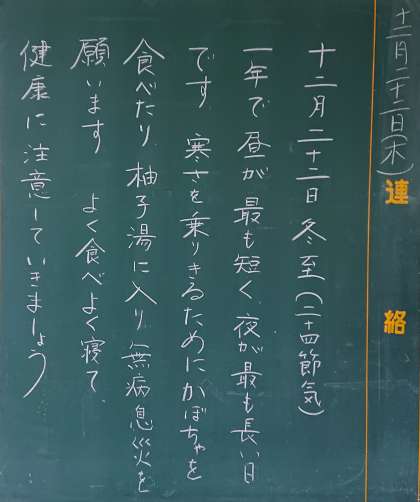 十二月二十二日(木)
連絡
十二月二十二日冬至(二十四節気)
一年で昼が最も短く、夜が最も長い日
です 寒さを乗りきるためにかぼちゃを
食べたり、柚子湯に入り、無病息災を
願います よく食べよく寝て、
健康に注意していきましょう